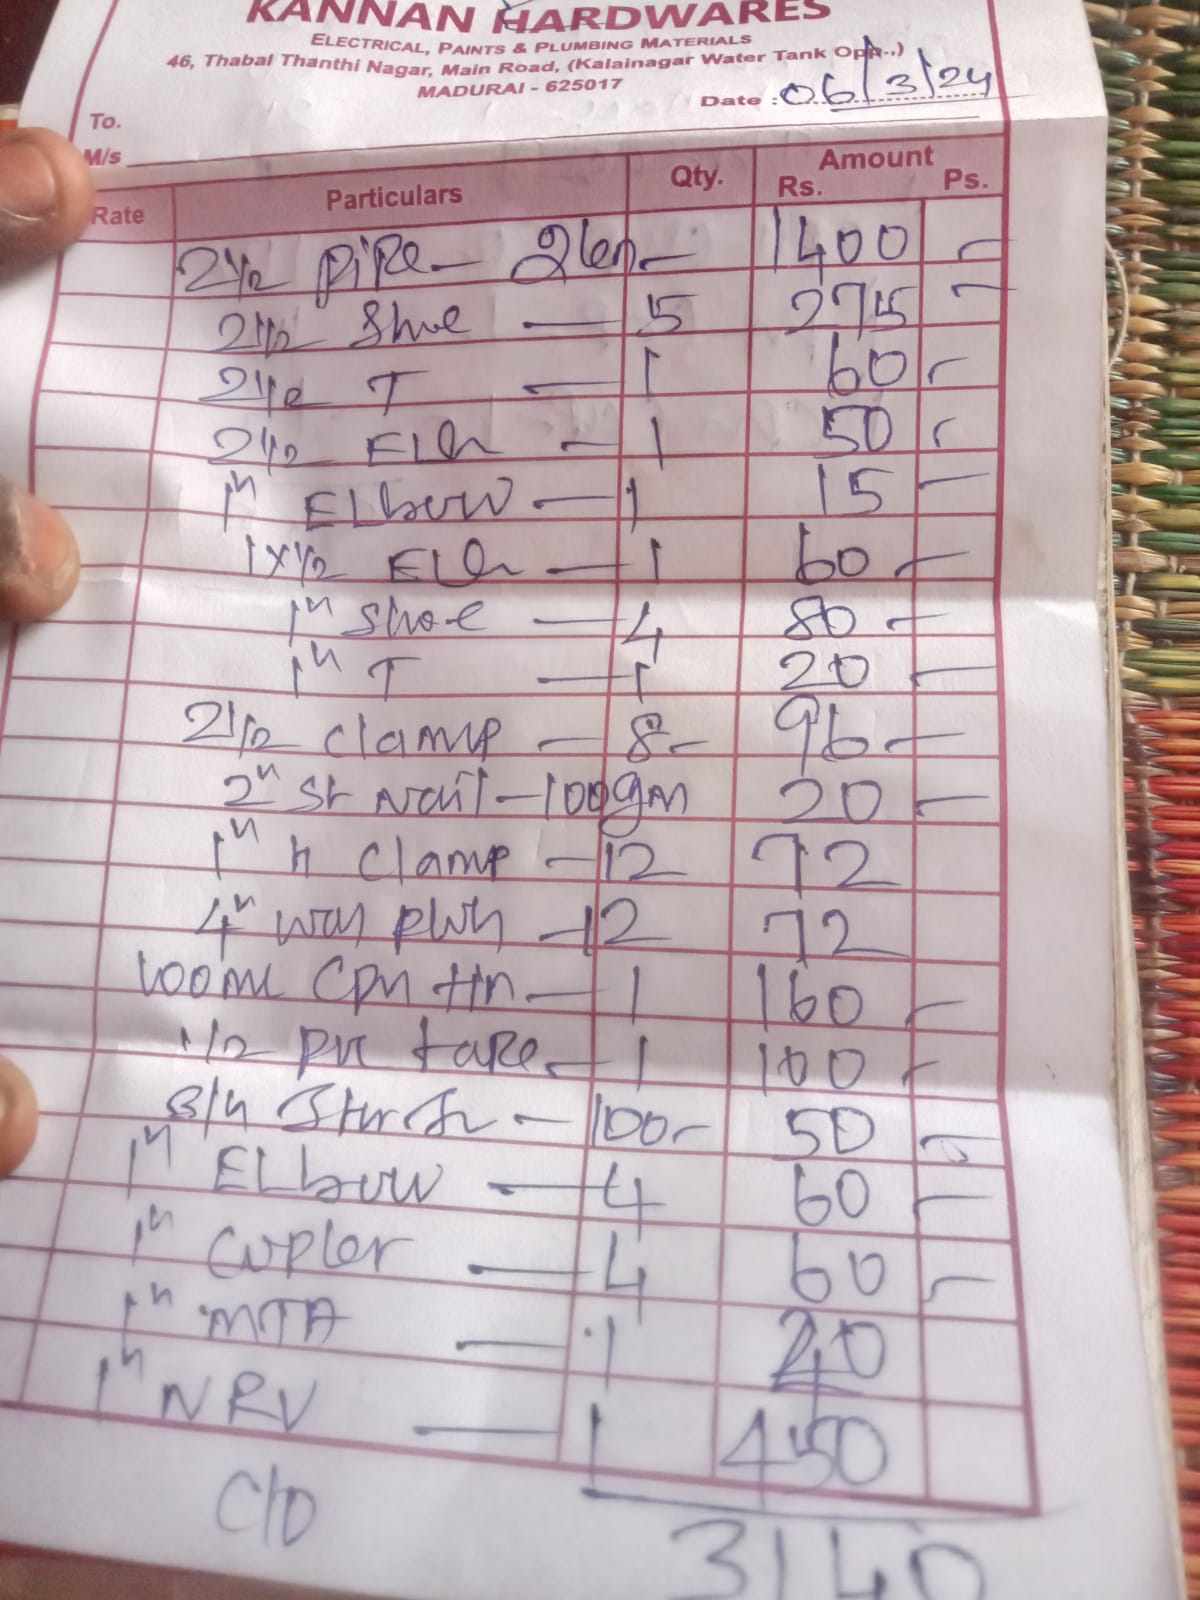 KANNAN HARDWARES
ELECTRICAL, PAINTS & PLUMBING MATERIALS
46, Thabal Thanthi Nagar, Main Road, (Kalainagar Water Tank Opp.,)
MADURAI - 625017
Date : 06/3/24
To.
M/s
Rate Particulars Qty. Amount Rs. Ps.
2 1/2 PiPe - 1400 -
2 1/2 Shoe - 5 275 -
2 1/2 T - 1 60 -
2 1/2 ELb - 1 50 -
1" ELbow - 1 15 -
1 x 1/2 ELb - 1 60 -
1" Shoe - 4 80 -
1" T - 1 20 -
2 1/2 clamp - 8 - 96 -
2" St Nail - 100gm 20 -
1" h clamp - 12 72
4" way - 12 72
100ml - 1 160 -
1/2 pvc tape - 1 100 -
3/4 - 100 - 50 -
1" ELbow - 4 60 -
1" Cupler - 4 60 -
1" MTA - 1 20
1" NRV - 1 450
C/O 3140